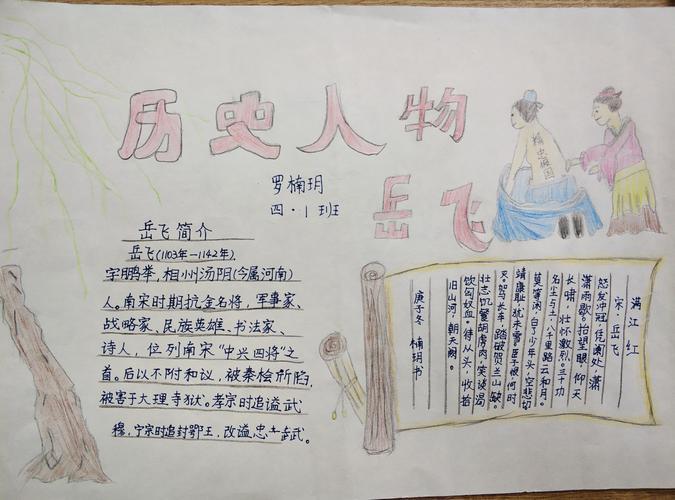 历史人物
岳飞
罗楠玥
四·1班
精忠报国
岳飞简介
岳飞(1103年-1142年),
字鹏举，相州汤阴(今属河南)
人。南宋时期抗金名将，军事家、
战略家、民族英雄、书法家、
诗人，位列南宋“中兴四将”之
首。后以不附和议，被秦桧所陷，
被害于大理寺狱。孝宗时追谥武
穆，宁宗时追封鄂王，改谥忠武。
满江红
宋·岳飞
怒发冲冠，凭阑处，潇
潇雨歇。抬望眼，仰天
长啸，壮怀激烈。三十功
名尘与土，八千里路云和月。
莫等闲，白了少年头，空悲切
靖康耻，犹未雪。臣子恨，何时
灭。驾长车，踏破贺兰山缺。
壮志饥餐胡虏肉，笑谈渴
饮匈奴血。待从头，收拾
旧山河，朝天阙。
庚子冬 楠玥书